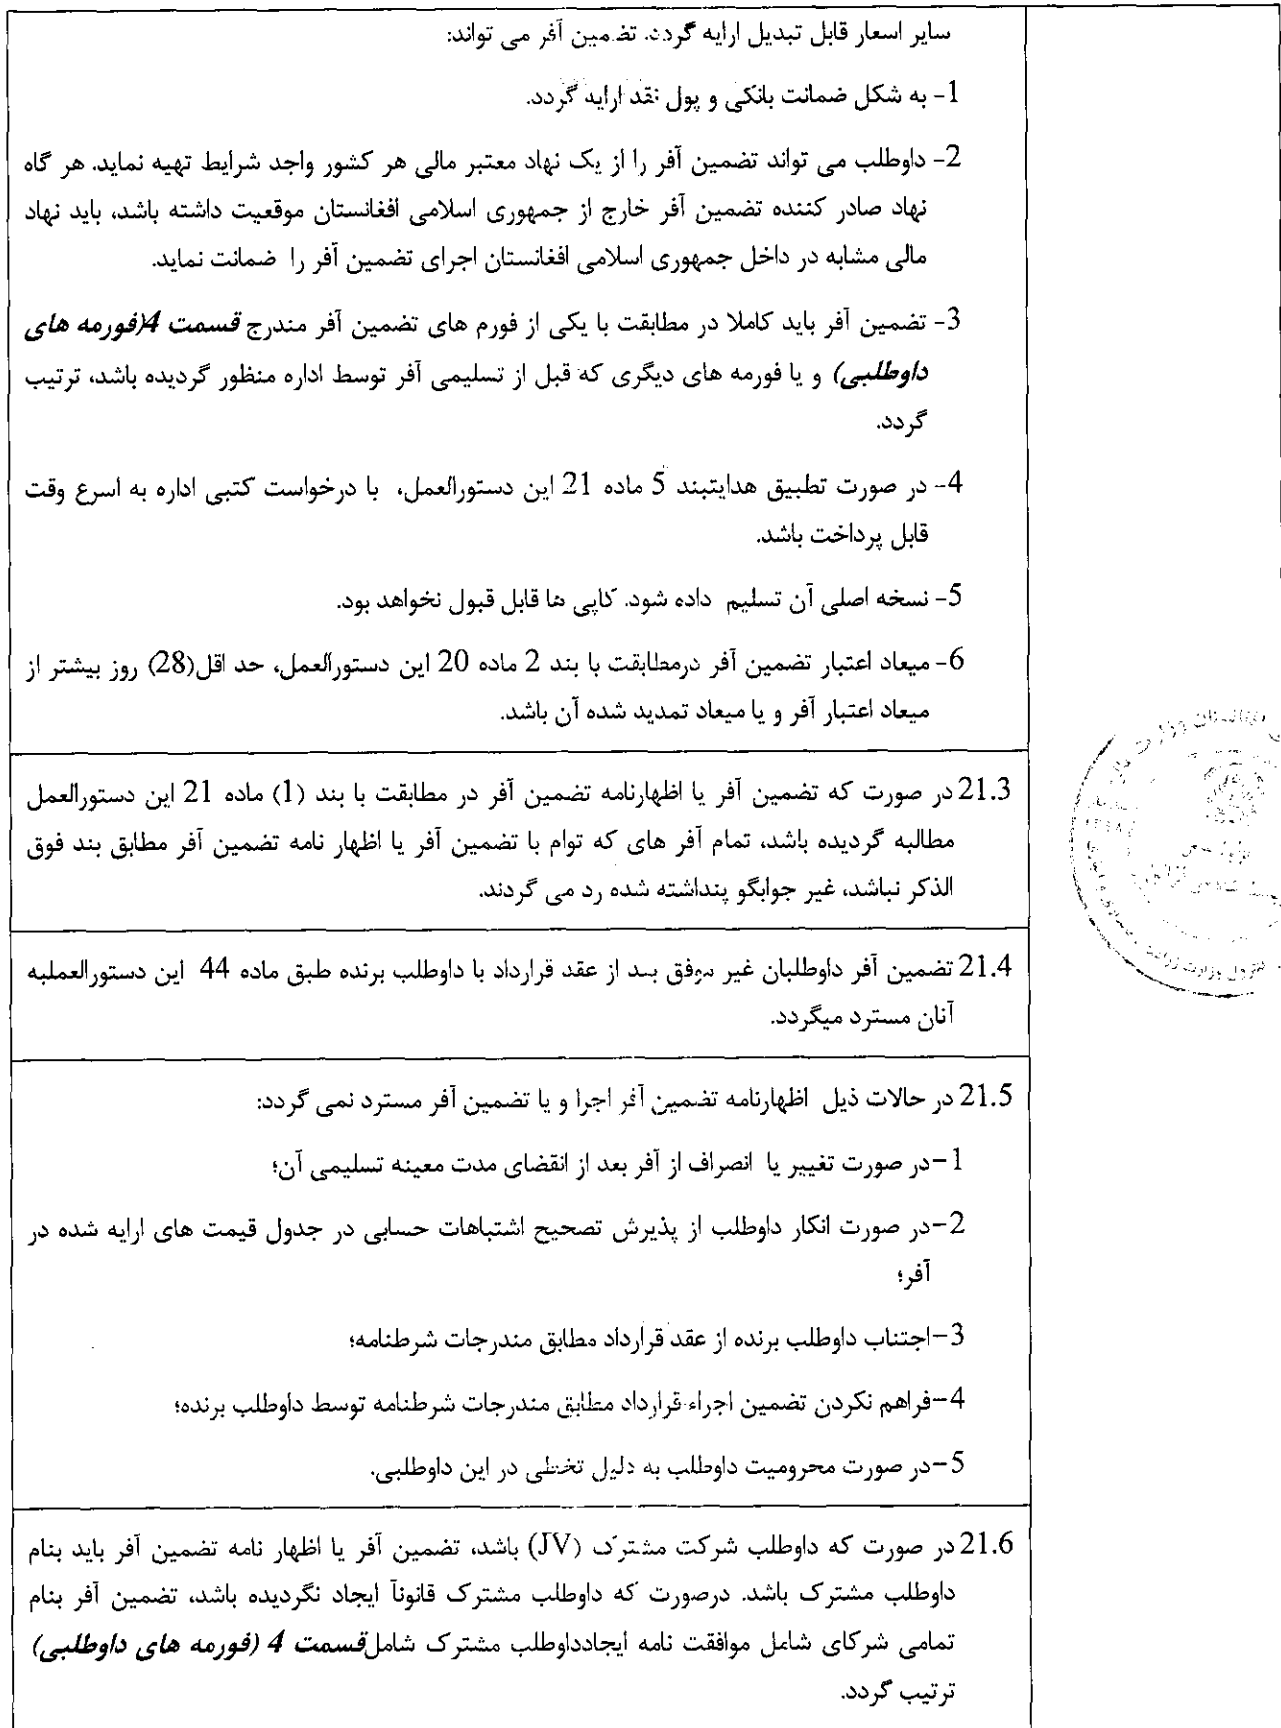 سایر اسعار قابل تبدیل ارایه گردد. تضمین آفر می تواند:
1- به شکل ضمانت بانکی و پول نقد ارایه گردد.
2- داوطلب می تواند تضمین آفر را از یک نهاد معتبر مالی هر کشور واجد شرایط تهیه نماید. هر گاه
نهاد صادر کننده تضمین آفر خارج از جمهوری اسلامی افغانستان موقعیت داشته باشد، باید نهاد
مالی مشابه در داخل جمهوری اسلامی افغانستان اجرای تضمین آفر را ضمانت نماید.
3- تضمین آفر باید کاملا در مطابقت با یکی از فورم های تضمین آفر مندرج قسمت 4(فورمه های
داوطلبی) و یا فورمه های دیگری که قبل از تسلیمی آفر توسط اداره منظور گردیده باشد، ترتیب
گردد.
4- در صورت تطبیق هدایتبند 5 ماده 21 این دستورالعمل، با درخواست کتبی اداره به اسرع وقت
قابل پرداخت باشد.
5- نسخه اصلی آن تسلیم داده شود. کاپی ها قابل قبول نخواهد بود.
6- میعاد اعتبار تضمین آفر درمطابقت با بند 2 ماده 20 این دستورالعمل، حد اقل(28) روز بیشتر از
میعاد اعتبار آفر و یا میعاد تمدید شده آن باشد.
21.3 در صورت که تضمین آفر یا اظهارنامه تضمین آفر در مطابقت با بند (1) ماده 21 این دستورالعمل
مطالبه گردیده باشد، تمام آفر های که توام با تضمین آفر یا اظهار نامه تضمین آفر مطابق بند فوق
الذکر نباشد، غیر جوابگو پنداشته شده رد می گردند.
21.4 تضمین آفر داوطلبان غیر موفق بعد از عقد قرارداد با داوطلب برنده طبق ماده 44 این دستورالعملبه
آنان مسترد میگردد.
21.5 در حالات ذیل اظهارنامه تضمین آفر اجرا و یا تضمین آفر مسترد نمی گردد:
1-در صورت تغییر یا انصراف از آفر بعد از انقضای مدت معینه تسلیمی آن؛
2-در صورت انکار داوطلب از پذیرش تصحیح اشتباهات حسابی در جدول قیمت های ارایه شده در
آفر؛
3-اجتناب داوطلب برنده از عقد قرارداد مطابق مندرجات شرطنامه؛
4-فراهم نکردن تضمین اجراء قرارداد مطابق مندرجات شرطنامه توسط داوطلب برنده؛
5-در صورت محرومیت داوطلب به دلیل تخطی در این داوطلبی.
21.6 در صورت که داوطلب شرکت مشترک (JV) باشد، تضمین آفر یا اظهار نامه تضمین آفر باید بنام
داوطلب مشترک باشد. درصورت که داوطلب مشترک قانوناً ایجاد نگردیده باشد، تضمین آفر بنام
تمامی شرکای شامل موافقت نامه ایجادداوطلب مشترک شاملقسمت 4 (فورمه های داوطلبی)
ترتیب گردد.